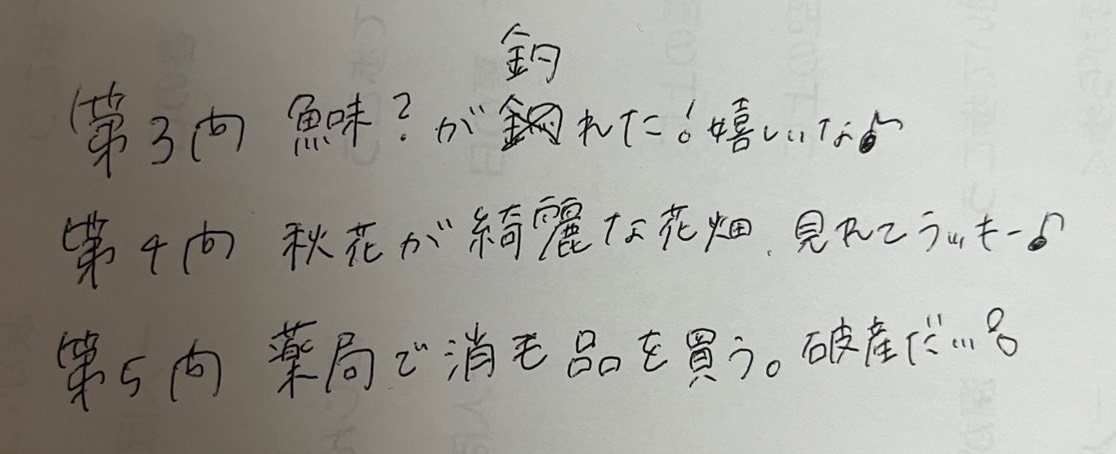 第3向 魚味?が釣れた!嬉しいな♪
第4向 秋花が綺麗な花畑、見れてラッキー♪
第5向 薬局で消毛品を買う。破産だ…